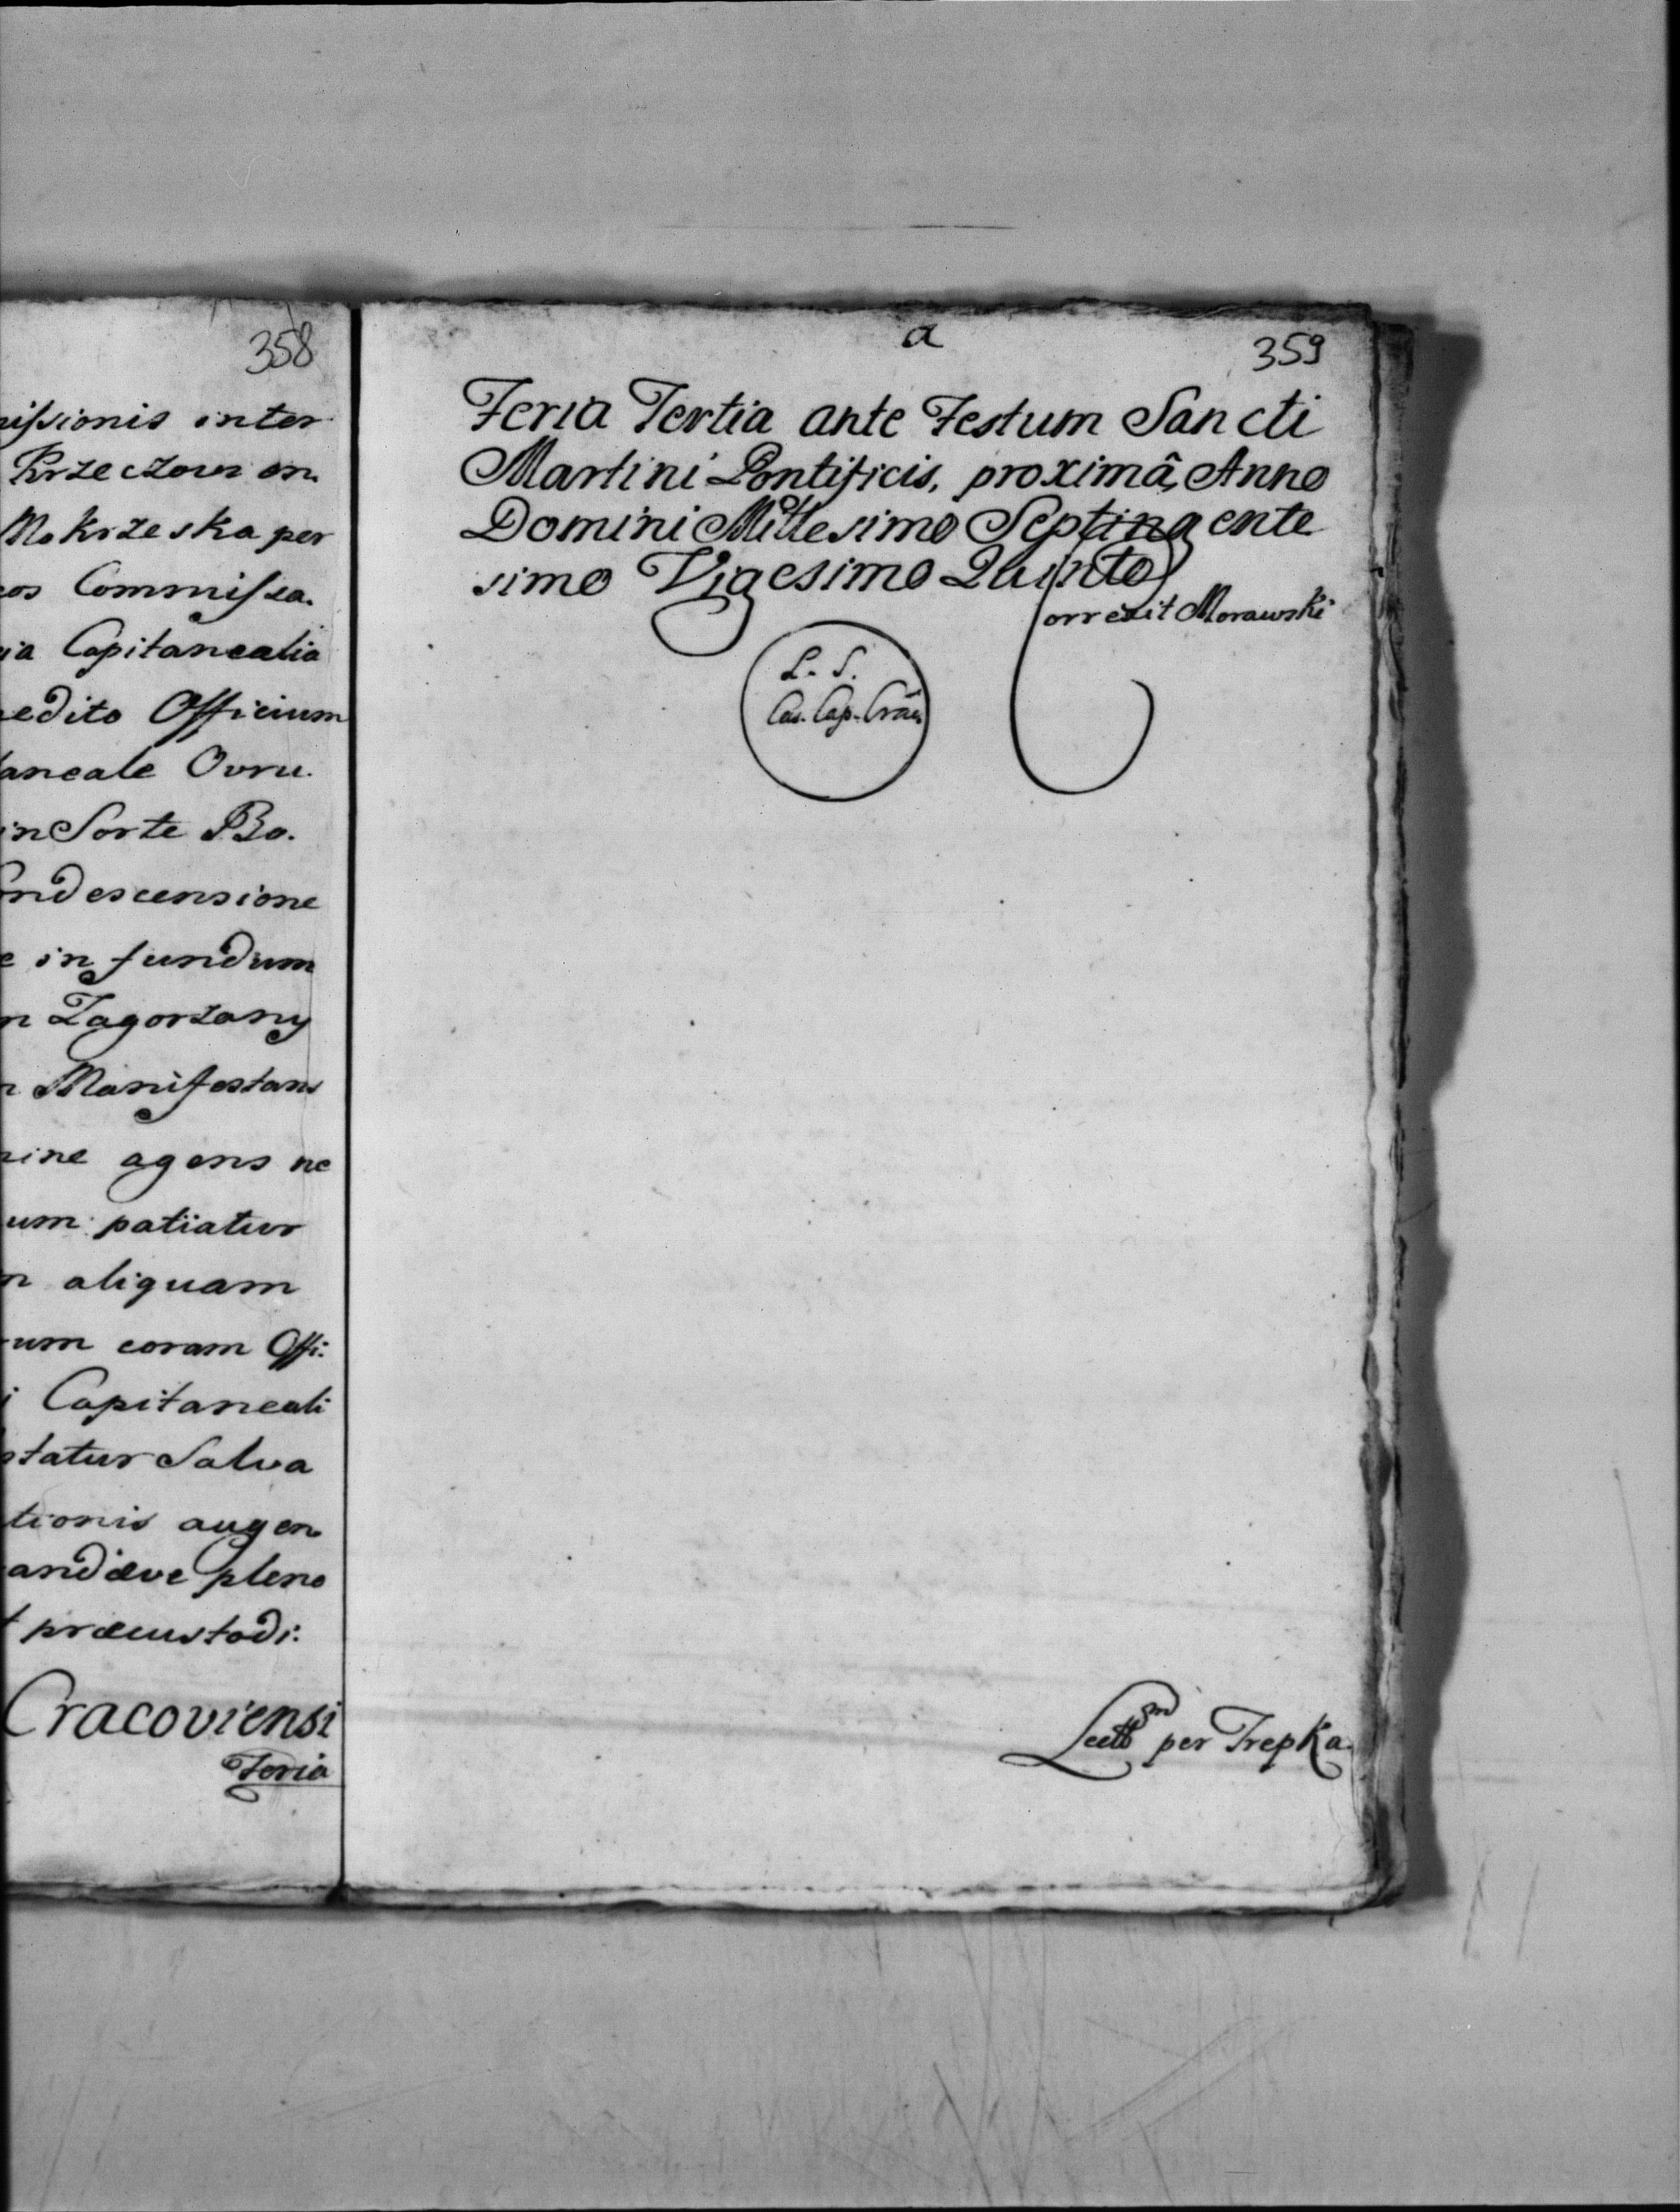 358
missionis inter
Krzeczow en
Mokrzeska per
cos Commissa.
ria Capitanealia
edito Officium
taneale Ovru.
in Sorte Bo.
ondescensione
e in fundum
n Zagorzany
n Manifestans
mine agens ne
um patiatur
n aliquam
rum coram Offi:
i Capitaneali
statur Salva
tionis augen
andæve pleno
t præcustodi:
Cracoviensi
Feria
a
359
Feria Tertia ante Festum Sancti
Martini Pontificis, proximâ, Anno
Domini Millesimo Septingente
simo Vigesimo Quinto
Correxit Morawski
L. S.
Cas. Cap. Crac̃
Lectt per Trepka